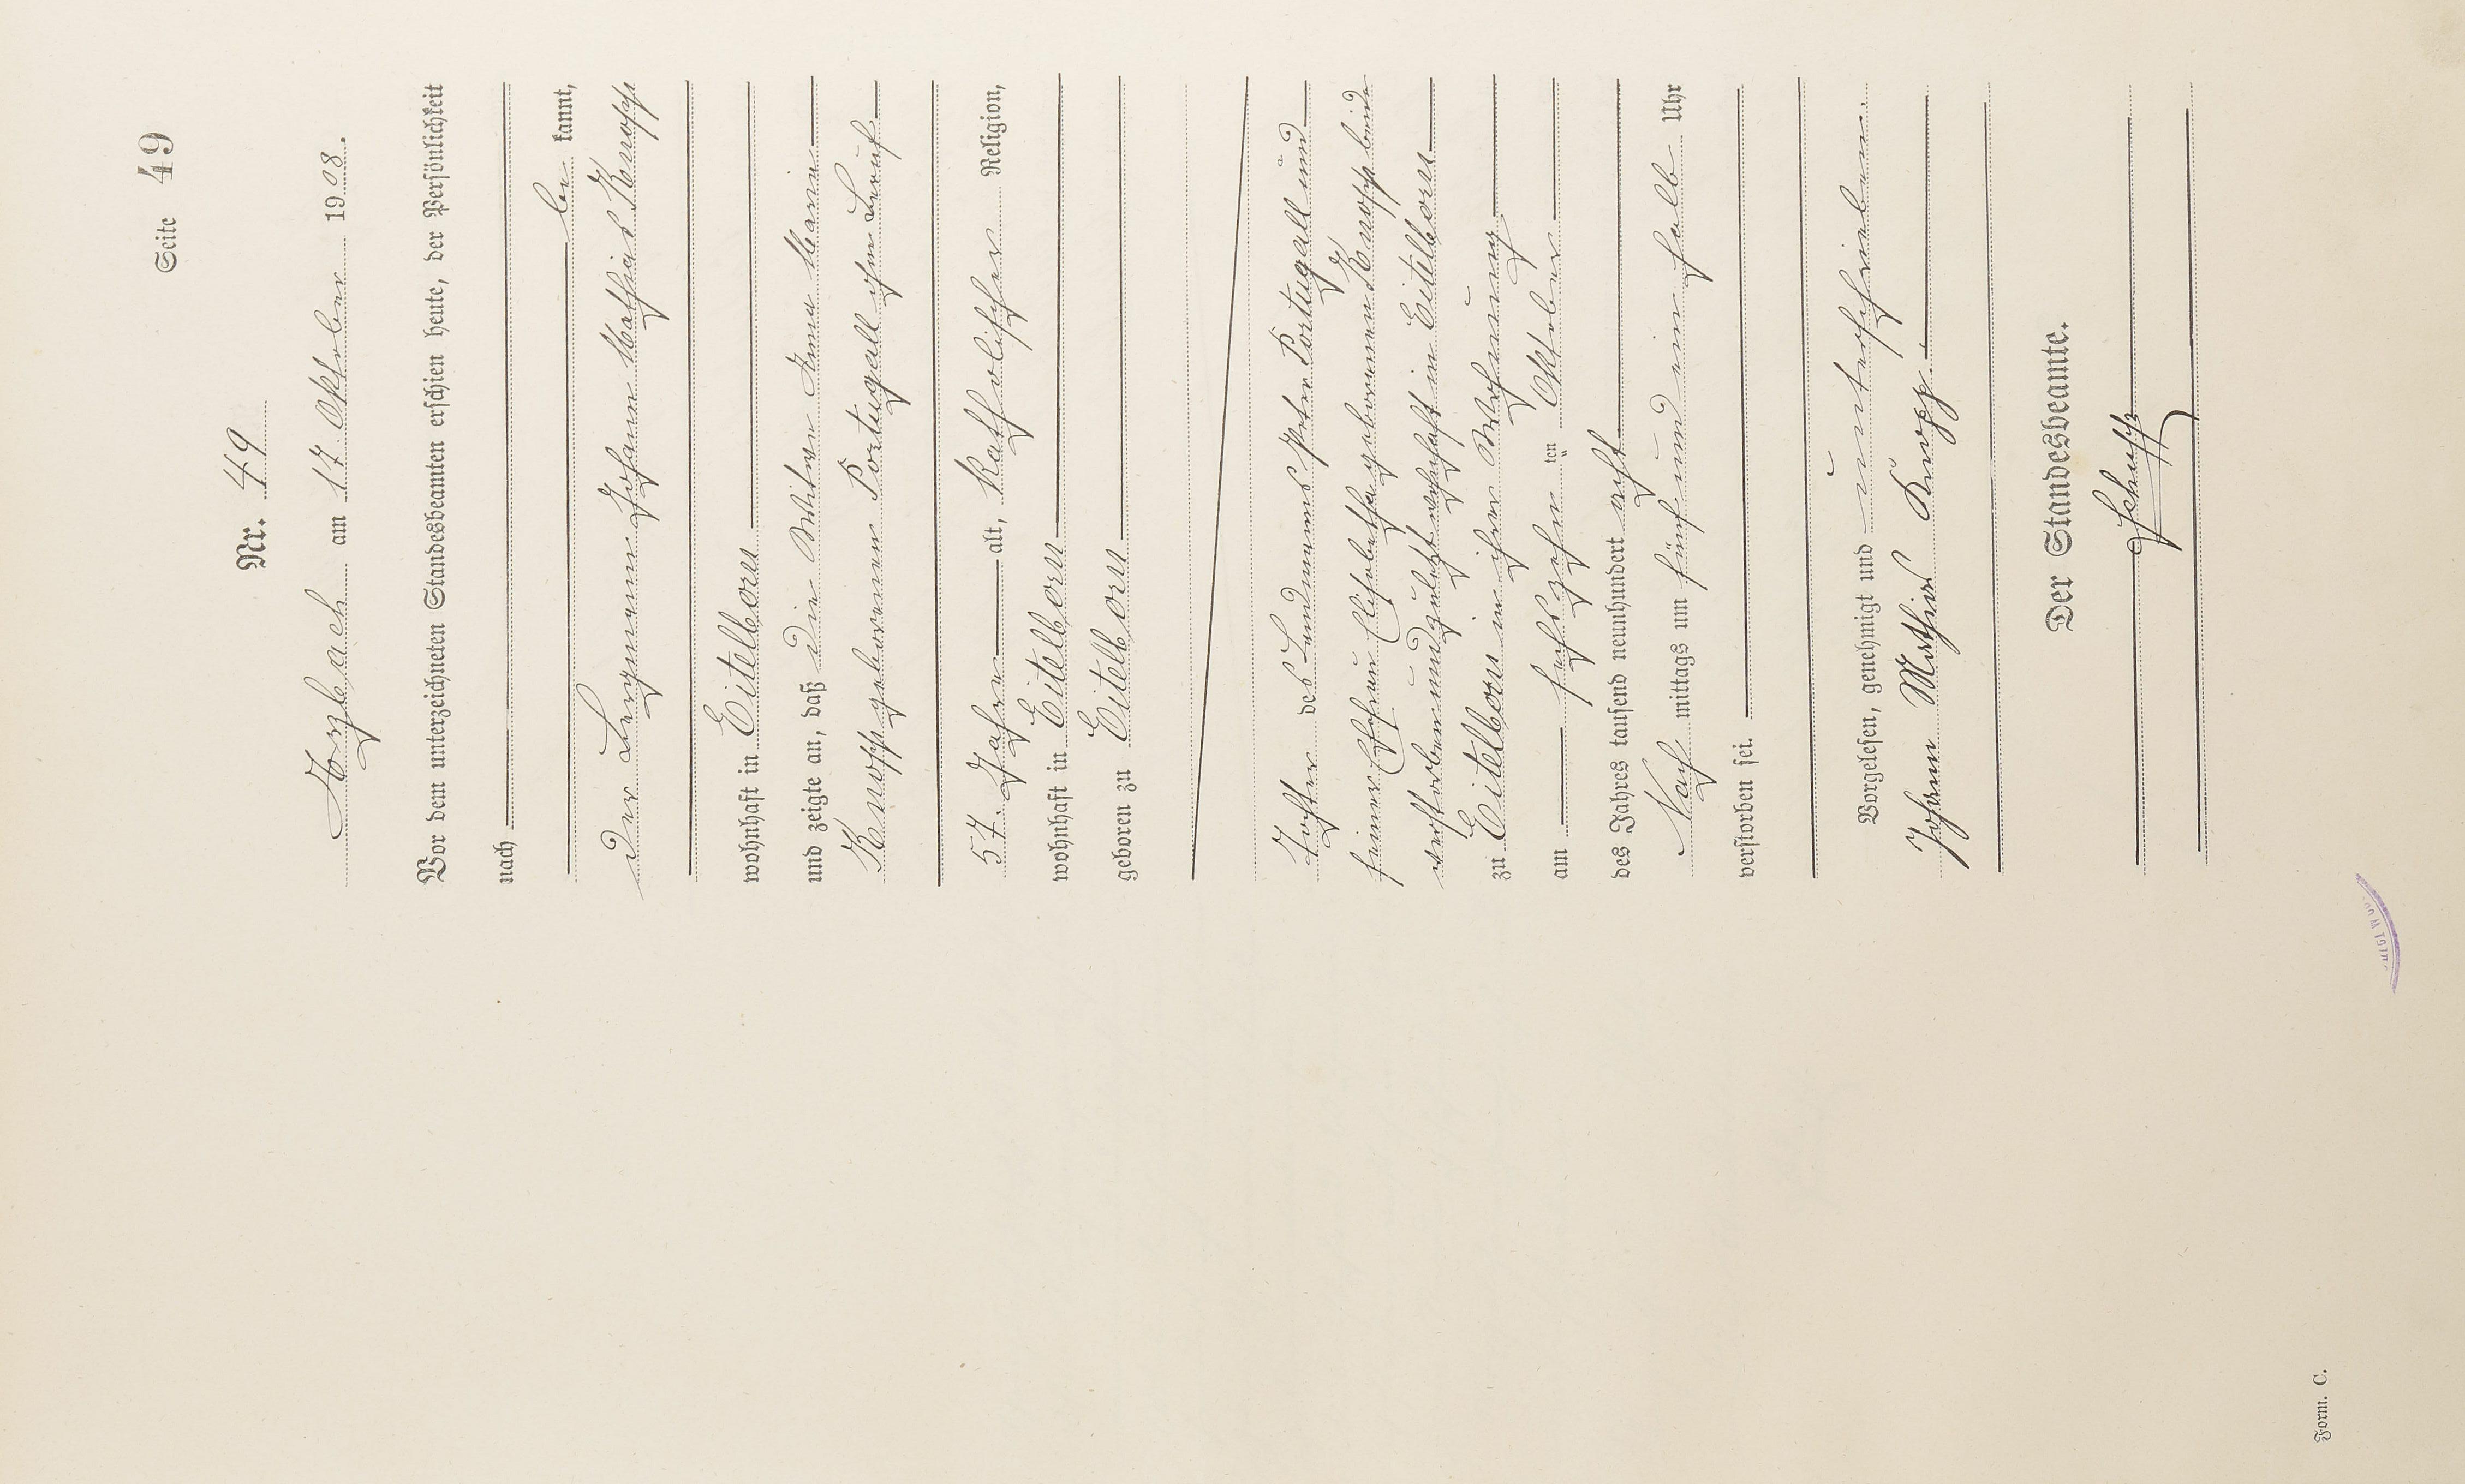 Seite 49
Nr. 49
Arzbach am 17. Oktober 1908.
Vor dem unterzeichneten Standesbeamten erschien heute, der Persönlichkeit
nach
be kannt,
der Bergmann Johann Mathias Knopp
wohnhaft in Eitelborn
und zeigte an, daß die Witwe Anna Maria
Knopp geborenen Portugall ohne Beruf
57. Jahre alt, katholischer Religion,
wohnhaft in Eitelborn
geboren zu Eitelborn
Tochter des Landmanns Peter Portugall und
seiner Ehefrau Elisabetha geborenen Knopp beide
verstorben und zuletzt wohnhaft in Eitelborn
zu Eitelborn in ihrer Wohnung
am sechszehn ten Oktober
des Jahres tausend neunhundert acht
Nach mittags um fünf und ein halb Uhr
verstorben sei.
Vorgelesen, genehmigt und unterschrieben.
Johann Mathias Knopp.
Der Standesbeamte.
Form. C.